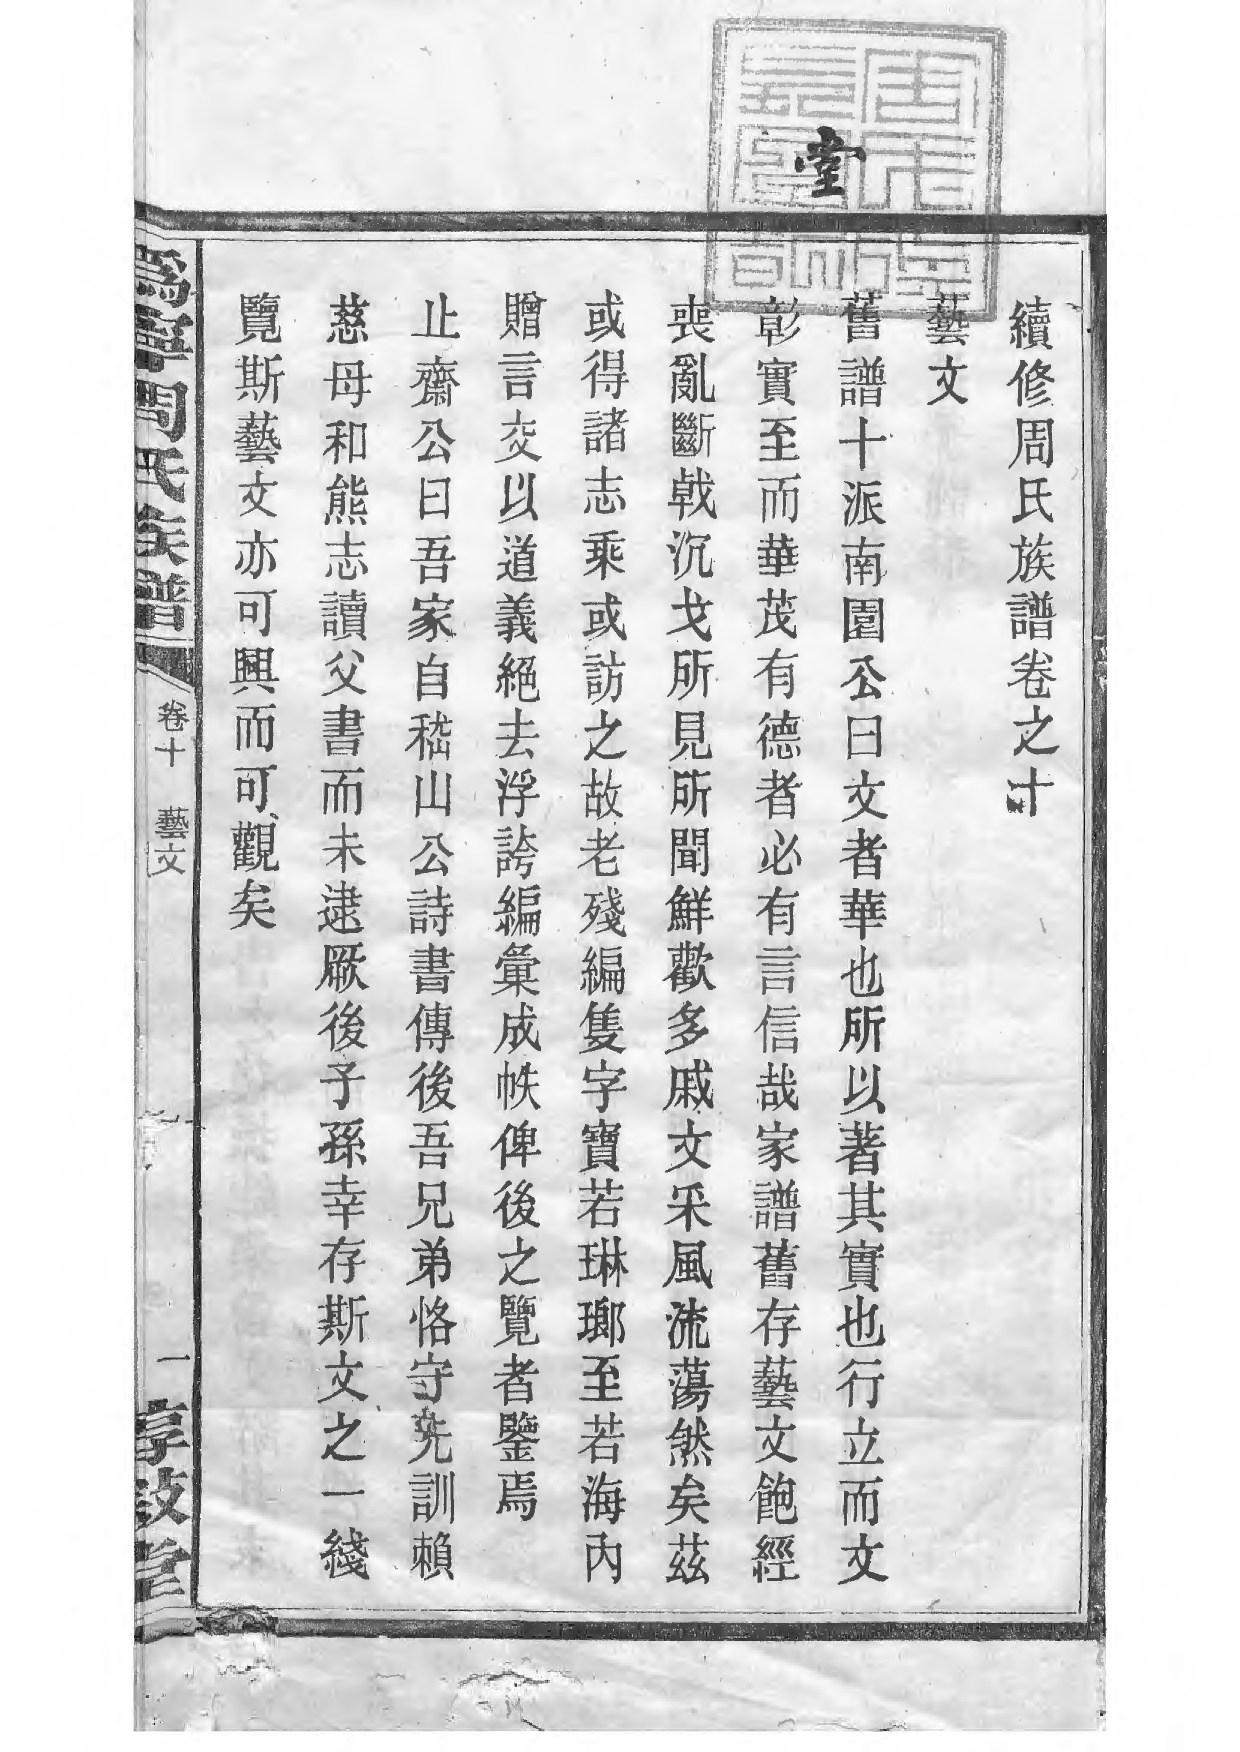 堂
續修周氏族譜卷之十
藝文
舊譜十派南園公曰文者華也所以著其實也行立而文
彰實至而華茂有德者必有言信哉家譜舊存藝文飽經
喪亂斷戟沉戈所見所聞鮮歡多戚文采風流蕩然矣茲
或得諸志乘或訪之故老殘編隻字寶若琳瑯至若海內
贈言交以道義絕去浮誇編彙成帙俾後之覽者鑒焉
止齋公曰吾家自嵇山公詩書傳後吾兄弟恪守先訓賴
慈母和熊志讀父書而未逮厥後子孫幸存斯文之一綫
覽斯藝文亦可興而可觀矣
爲寧周氏族譜
卷十 藝文
一
享敍堂